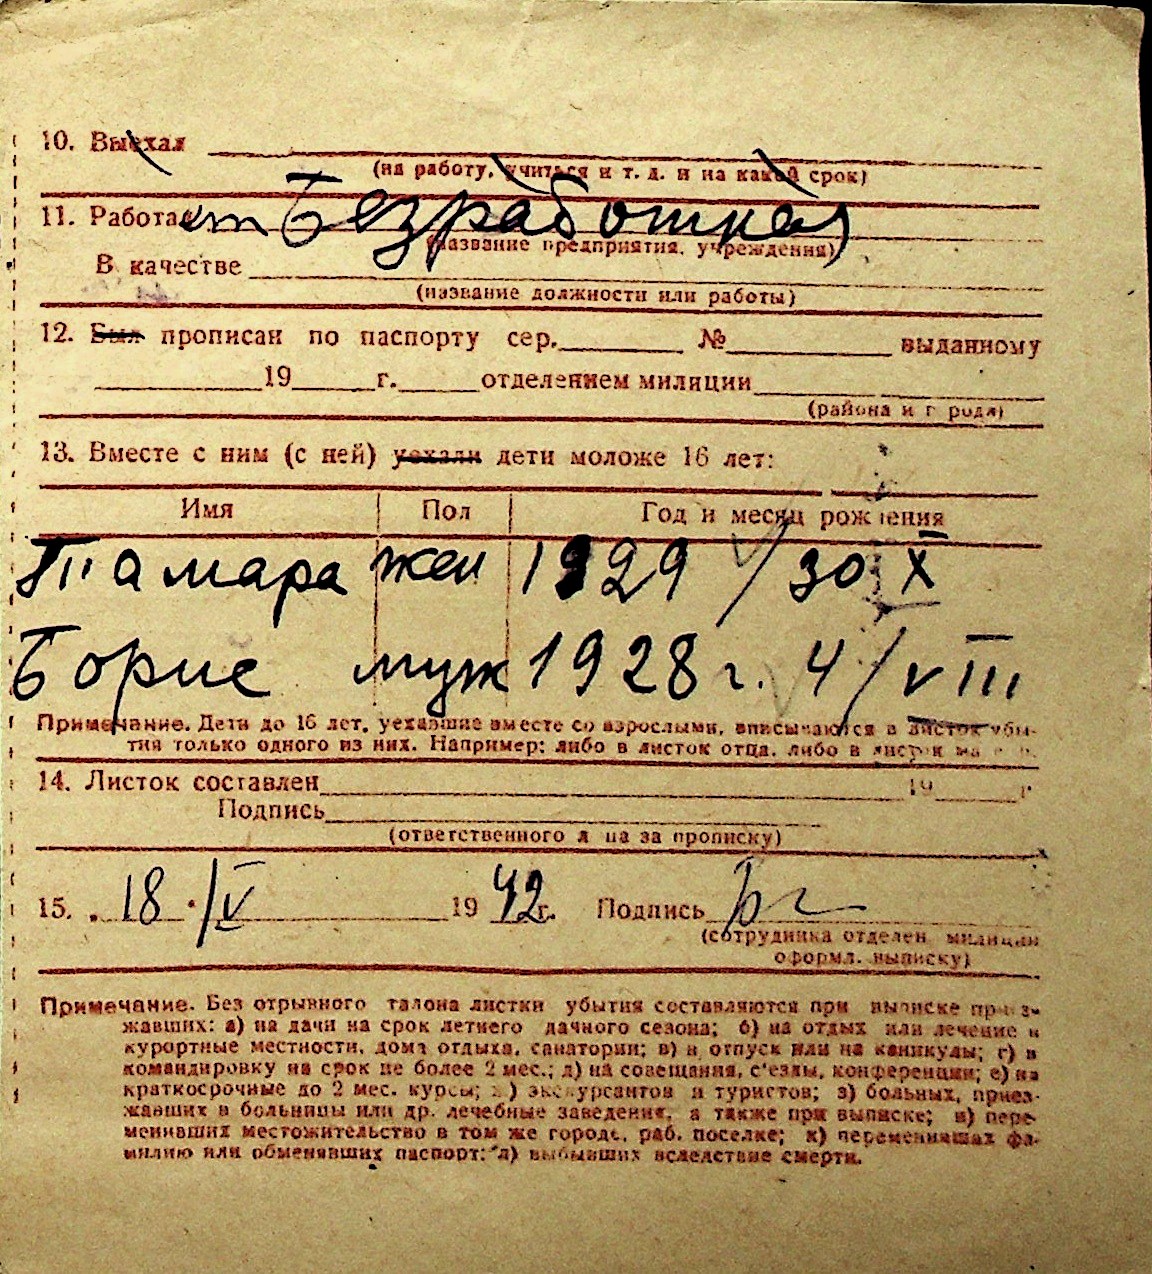 10. Выехал
(на работу, учиться и т. д. и на какой срок)
11. Работает Безработная
(название предприятия, учреждения)
В качестве
(название должности или работы)
12. Был прописан по паспорту сер. № выданному
19 г. отделением милиции
(района и г рода)
13. Вместе с ним (с ней) уехали дети моложе 16 лет:
Имя Пол Год и месяц рождения
Тамара жен 1929 / 30 X
Борис муж 1928 г. 4 / VIII
Примечание. Дети до 16 лет, уехавшие вместе со взрослыми, вписываются в листок убы-
тия только одного из них. Например: либо в листок отца, либо в листок
14. Листок составлен 19 г
Подпись
(ответственного л ца за прописку)
15. 18 / V 1942 г. Подпись
(сотрудника отделен милиции
оформл. выписку)
Примечание. Без отрывного талона листки убытия составляются при выписке приез-
жавших: а) на дачи на срок летнего дачного сезона; б) на отдых или лечение в
курортные местности, дома отдыха, санатории; в) в отпуск или на каникулы; г) в
командировку на срок не более 2 мес.; д) на совещания, с'езды, конференции; е) на
краткосрочные до 2 мес. курсы; ) экскурсантов и туристов; з) больных, приез-
жавших в больницы или др. лечебные заведения, а также при выписке; и) пере-
менивших местожительство в том же городе, раб. поселке; к) переменивших фа-
милию или обменявших паспорт; л) выбывших вследствие смерти.